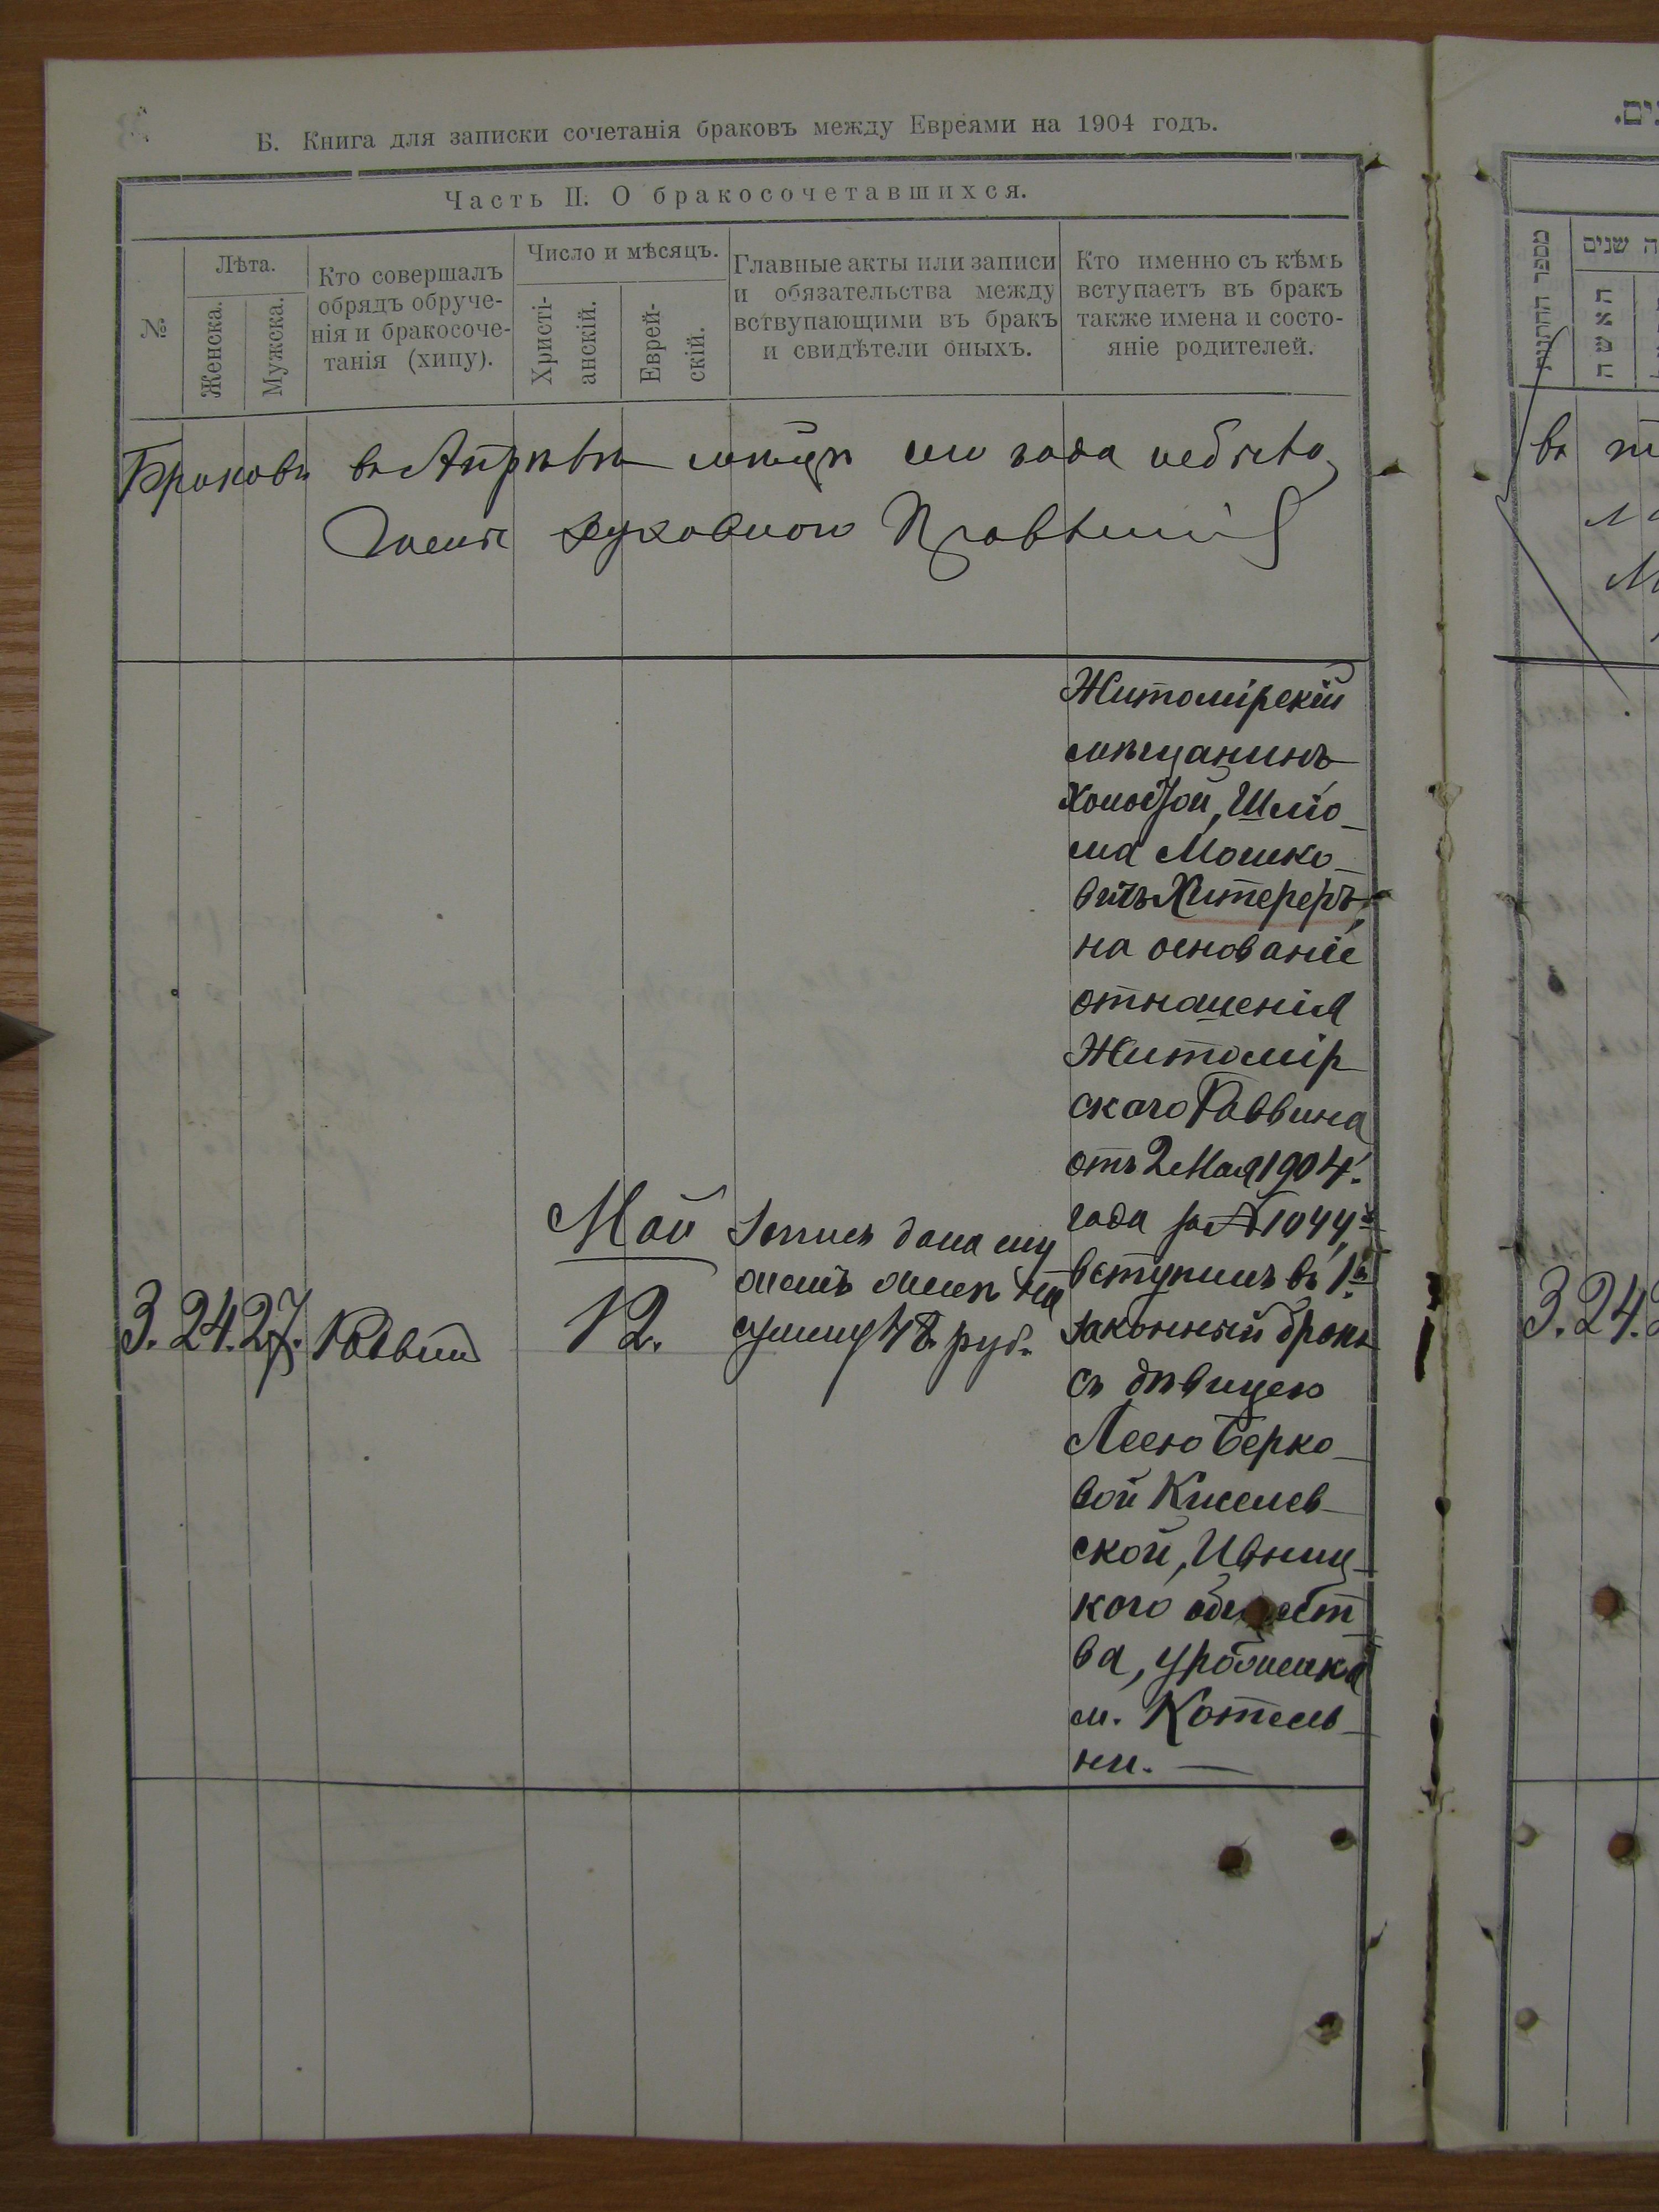 Б. Книга для записки сочетанія браковъ между Евреями на 1904 годъ.
Часть II. О бракосочетавшихся.
№
Лѣта.
Женска.
Мужска.
Кто совершалъ
обрядъ обруче-
нія и бракосоче-
танія (хипу).
Число и мѣсяцъ.
Христі-
анскій.
Еврей-
скій.
Главные акты или записи
и обязательства между
вствупающими въ бракъ
и свидѣтели оныхъ.
Кто именно съ кѣмъ
вступаетъ въ бракъ
также имена и состо-
яніе родителей.
Браковъ въ Апрѣлѣ мѣсяцѣ сего года небыло
Члены духовного Правленія
3. 24. 27. Раввин
Май
12.
Запись дана ему
онемъ женѣ на
сумму 48 руб.
Житомірскій
мѣщанинъ
холостой, Шлio-
ма Мошко-
вичъ Хитереръ,
на основаніе
отношенія
Житомір
скаго Раввина
отъ 2 Мая 1904.
года за № 1044,
вступилъ въ 1й
законный бракъ
съ дѣвицею
Леею Берко-
вой Киселев-
ской, Ивниц-
кого общест-
ва, уроженка
м. Котель-
ни. —
נים.
מספר החתונות
ה שנים
האשה
въ
3. 24. 2